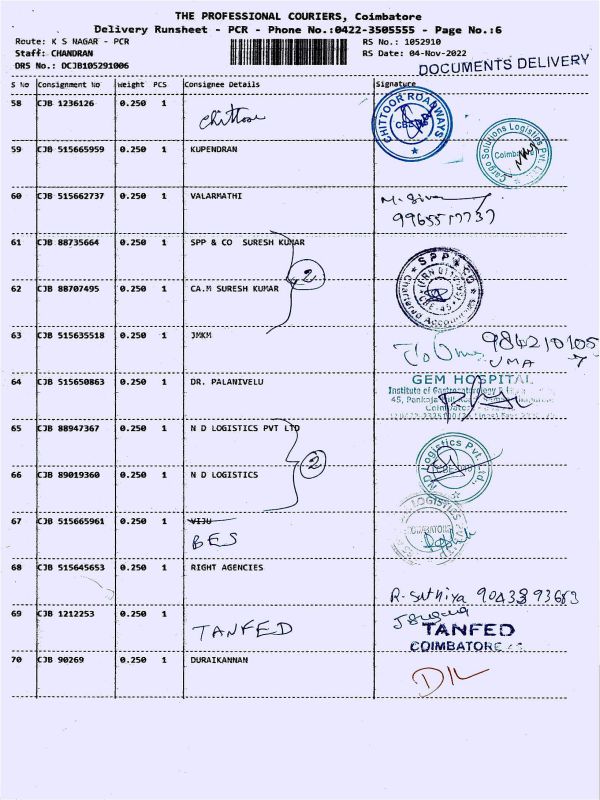 THE PROFESSIONAL COURIERS, Coimbatore
Delivery Runsheet - PCR - Phone No.:0422-3505555 - Page No.:6
Route: K S NAGAR - PCR
RS No.: 1052910
Staff: CHANDRAN
RS Date: 04-Nov-2022
DRS No.: DCJB105291006
DOCUMENTS DELIVERY
S No Consignment No Weight PCS Consignee Details Signature
58 CJB 1236126 0.250 1 Chittoor
CHITTOOR ROADWAYS
59 CJB 515665959 0.250 1 KUPENDRAN
Cargo Solutions Logistics Pvt. Ltd.
60 CJB 515662737 0.250 1 VALARMATHI
M. Siva
9965517737
61 CJB 88735664 0.250 1 SPP & CO SURESH KUMAR
2
SPP & CO
Chartered Accountants
62 CJB 88707495 0.250 1 CA.M SURESH KUMAR
63 CJB 515635518 0.250 1 JMKM
9842101057
UMA
64 CJB 515650863 0.250 1 DR. PALANIVELU
GEM HOSPITAL
Institute of Gastroenterology
45, Pankaja Mill Road
65 CJB 88947367 0.250 1 N D LOGISTICS PVT LTD
2
N D Logistics Pvt. Ltd.
66 CJB 89019360 0.250 1 N D LOGISTICS
LOGISTICS
67 CJB 515665961 0.250 1 VIJU
BES
COIMBATORE
68 CJB 515645653 1 0.250 1 RIGHT AGENCIES
R. Sathiya 9043893663
69 CJB 1212253 0.250 1 TANFED
TANFED
COIMBATORE
70 CJB 90269 0.250 1 DURAIKANNAN